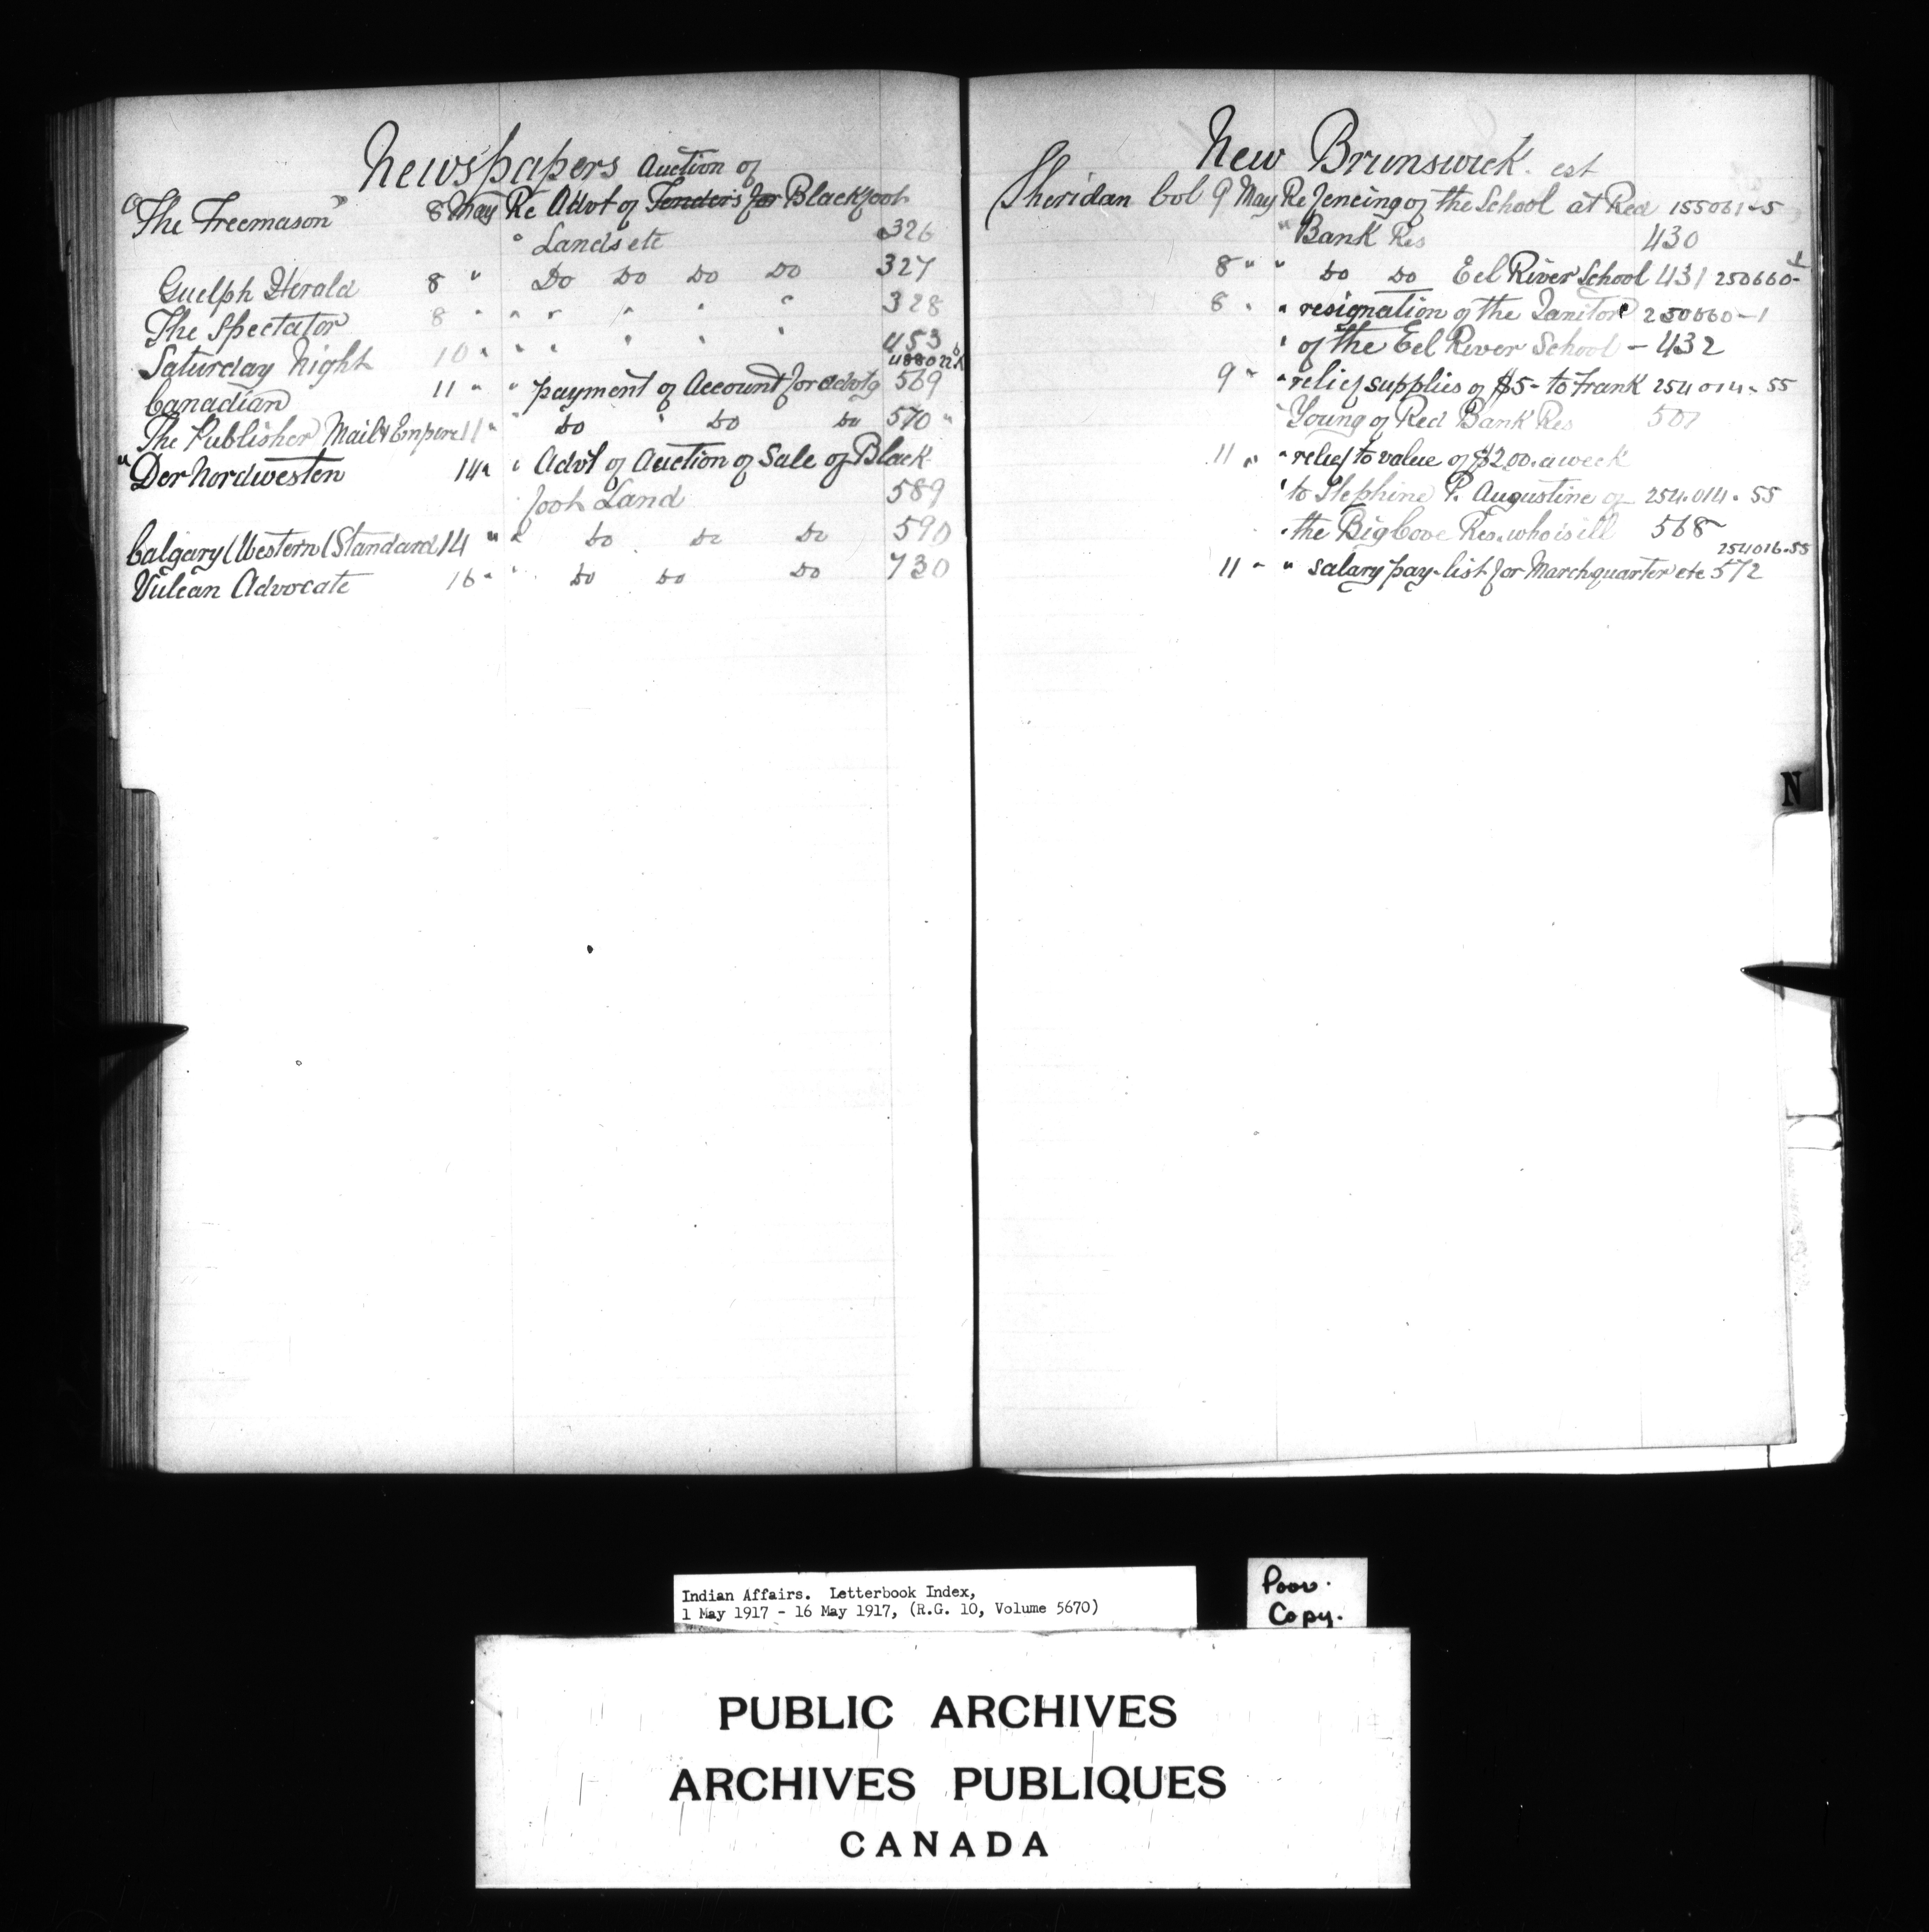 Newspapers Auction of
"The Freemason" 8 May Re Advt of Tenders for Blackfoot
" Lands etc 326
Guelph Herald 8 " Do Do Do Do 327
The Spectator 8 " " " " " " 328
Saturday Night 10 " " " " " " 453
Canadian 11 " " payment of Account for advtg 569
The Publisher Mail & Empire 11 " " Do " Do Do 570 "
"Der Nordwesten 14 " " Advt of Auction of Sale of Black-
foot Land 589
Calgary (Western (Standard 14 " " Do Do Do 590
Vulcan Advocate 16 " " Do Do Do 730
New Brunswick. est
Sheridan Col 9 May Re fencing of the School at Red 155061-5
" Bank Res 430
8 " " Do Do Eel River School 431 250660-1
8 " " resignation of the Janitor 250660-1
" of the Eel River School - 432
9 " " relief supplies of $5- to Frank 254014-55
Young of Red Bank Res 507
11 " " relief to value of $2.00. a week
" to Stephine P. Augustine of 254.014.55
" the Big Cove Res. who is ill 568
254016-55
11 " " salary pay-list for March quarter etc 572
N
Indian Affairs. Letterbook Index,
1 May 1917 - 16 May 1917, (R.G. 10, Volume 5670)
Poor.
Copy.
PUBLIC ARCHIVES
ARCHIVES PUBLIQUES
CANADA